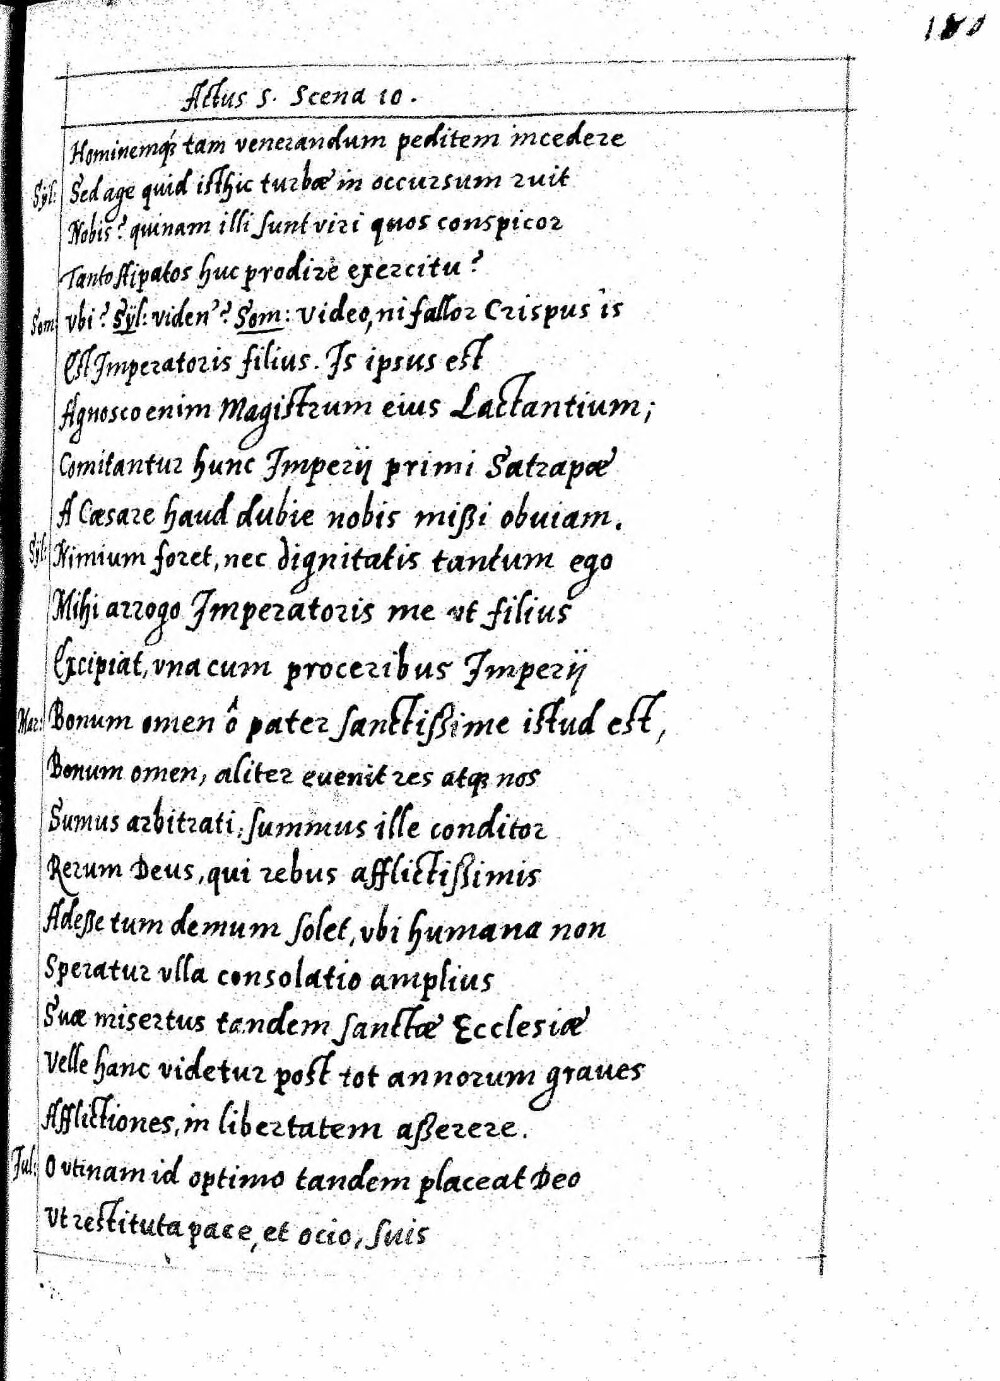 Actus 5. Scena 10.
Hominemq; tam venerandum peditem incedere
Syl: Sed age quid isthic turbæ in occursum ruit
Nobis? quinam illi sunt viri quos conspicor
Tanto stipatos huc prodire exercitu?
Som: vbi? Syl: viden'? Som: video, ni fallor Crispus is
Est Imperatoris filius. Is ipsus est
Agnosco enim Magistrum eius Lactantium;
Comitantur hunc Imperij primi Satrapæ
A Cæsare haud dubie nobis mißi obuiam.
Syl: Nimium foret, nec dignitatis tantum ego
Mihi arrogo Imperatoris me vt filius
Excipiat, vna cum proceribus Imperij
Mar: Bonum omen ô pater sanctißime istud est,
Bonum omen, aliter euenit res atq; nos
Sumus arbitrati; summus ille conditor
Rerum Deus, qui rebus afflictißimis
Adeße tum demum solet, vbi humana non
Speratur vlla consolatio amplius
Suæ misertus tandem sanctæ Ecclesiæ
Velle hanc videtur post tot annorum graues
Afflictiones, in libertatem aßerere.
Jul: O vtinam id optimo tandem placeat Deo
Vt restituta pace, et ocio, suis